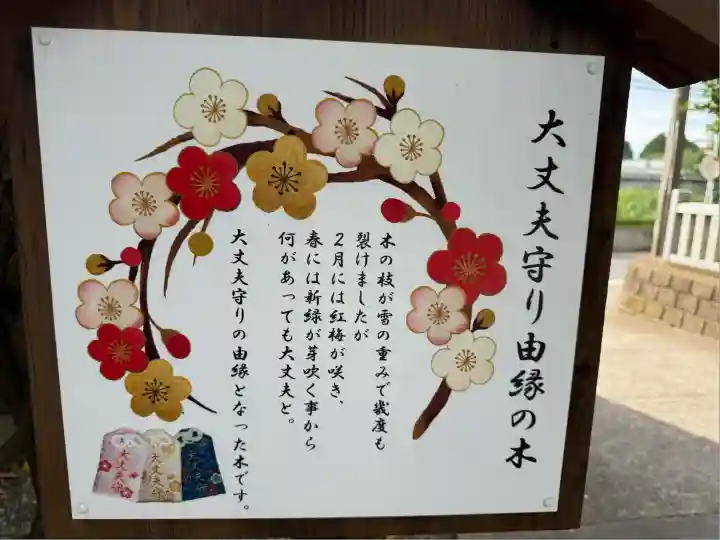 大丈夫守り由縁の木
木の枝が雪の重みで幾度も
裂けましたが
2月には紅梅が咲き、
春には新緑が芽吹く事から
何があっても大丈夫と。
大丈夫守りの由縁となった木です。
大丈夫守
大丈夫守
大丈夫守